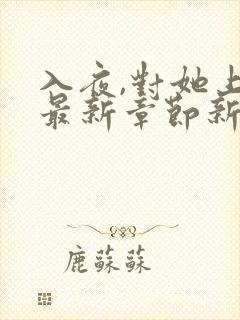 入夜,對她上
最新章節新
鹿蘇蘇